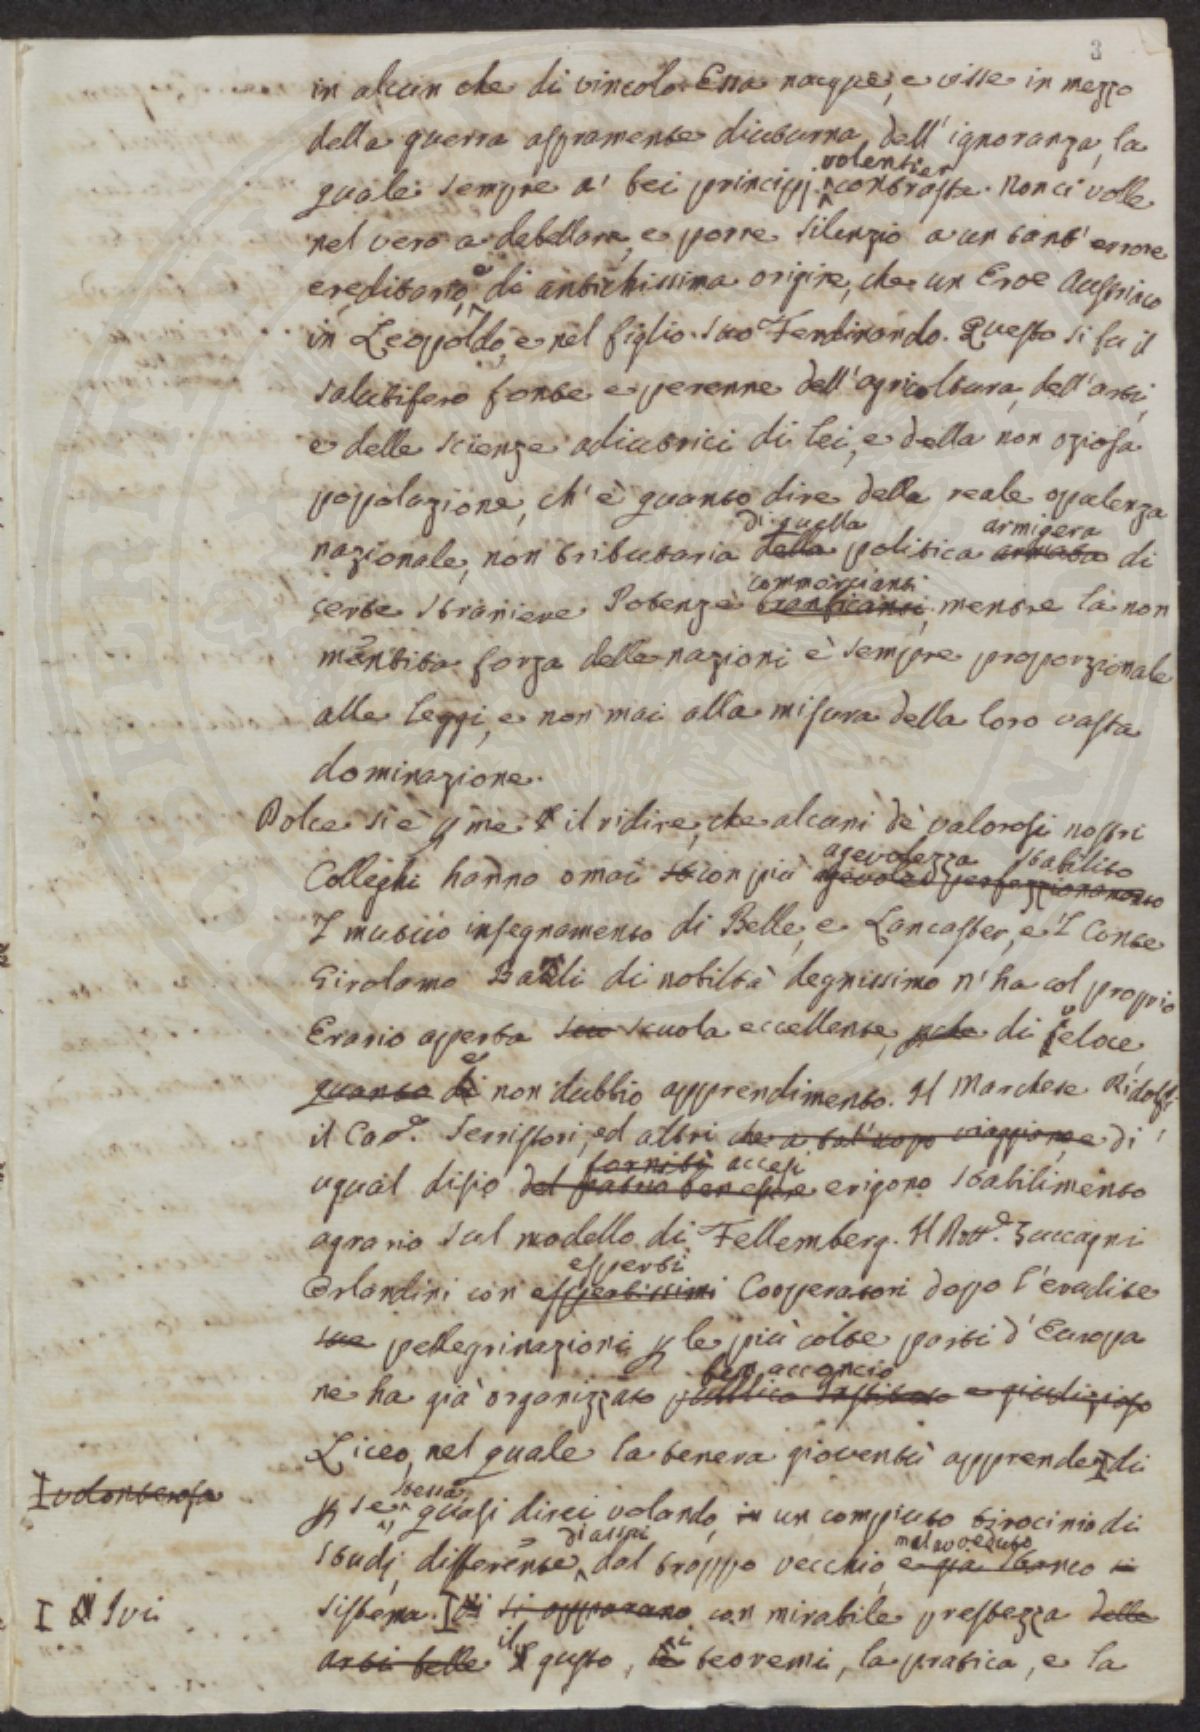 3
in alcun che di vincolo. Essa nacque, e visse in mezzo
della guerra aspramente diuturna dell'ignoranza, la
volentier
quale sempre a' bei principj contrasta. Non ci volle
nel vero a debellare, e porre silenzio a un tant'errore
ereditario, e di antichissima origine, che un Eroe Austriaco
in Leopoldo, e nel figlio suo Ferdinando. Questo si fu il
salutifero fonte e perenne dell'agricoltura, dell'arti,
e delle scienze adiutrici di lei, e della non oziosa
popolazione, ch'è quanto dire della reale opulenza
di quella armigera
nazionale, non tributaria della politica armata di
commercianti
certe straniere Potenze trafficanti, mentre la non
mentita forza delle nazioni è sempre proporzionale
alle leggi, e non mai alla misura della loro vasta
dominazione.
Dolce si è p me il ridire, che alcuni de' valorosi nostri
agevolezza stabilito
Colleghi hanno omai con più agevole perfezzionamento
'l mutuo insegnamento di Belle, e Lancaster, e 'l Conte
Girolamo Bardi di nobiltà degnissimo n'ha col proprio
Erario aperta scuola eccellente, di veloce,
e
quanto di non dubbio apprendimento. Il Marchese Ridolfi,
il Cav.e Serristori, ed altri che a tal'uopo viaggiono, e di
forniti accesi
ugual disio del patrio benessere erigono stabilimento
agrario sul modello di Fellemberg. Il Dott.e Zuccagni
esperti
Orlandini con espertissimi Cooperatori dopo l'erudite
sue pellegrinazioni p le più colte parti d'Europa
ben acconcio
ne ha già organizzato pubblico Instituto e giudizioso
Liceo, nel quale la tenera gioventù apprende di
I volonterosa
stessa
p se quasi direi volando, in un compiuto tirocinio di
di assai malavveduto
studj differente dal troppo vecchio, e già stanco
I Ivi
sistema. si apparano con mirabile prestezza delle
il i
arti belle gusto, teoremi, la pratica, e la